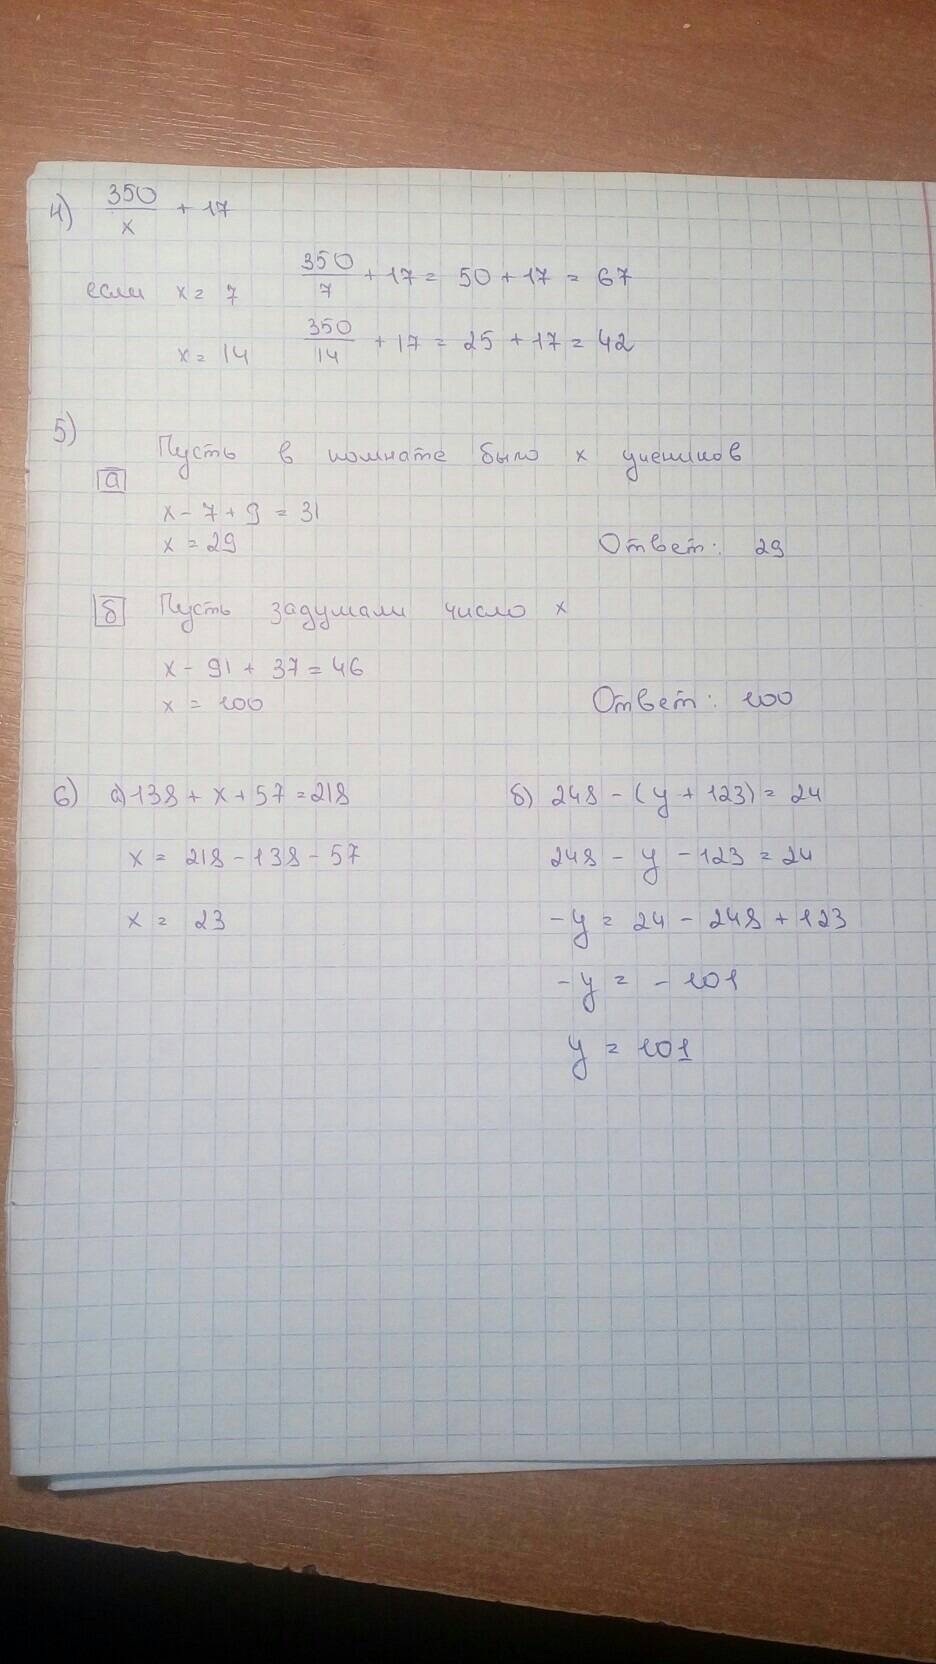 4) 350/x + 17
если x = 7 350/7 + 17 = 50 + 17 = 67
x = 14 350/14 + 17 = 25 + 17 = 42
5)
Пусть в комнате было x учеников
а
x - 7 + 9 = 31
x = 29 Ответ: 29
б Пусть задумали число x
x - 91 + 37 = 46
x = 100 Ответ: 100
6) а) 138 + x + 57 = 218 б) 248 - (y + 123) = 24
x = 218 - 138 - 57 248 - y - 123 = 24
x = 23 -y = 24 - 248 + 123
-y = - 101
y = 101